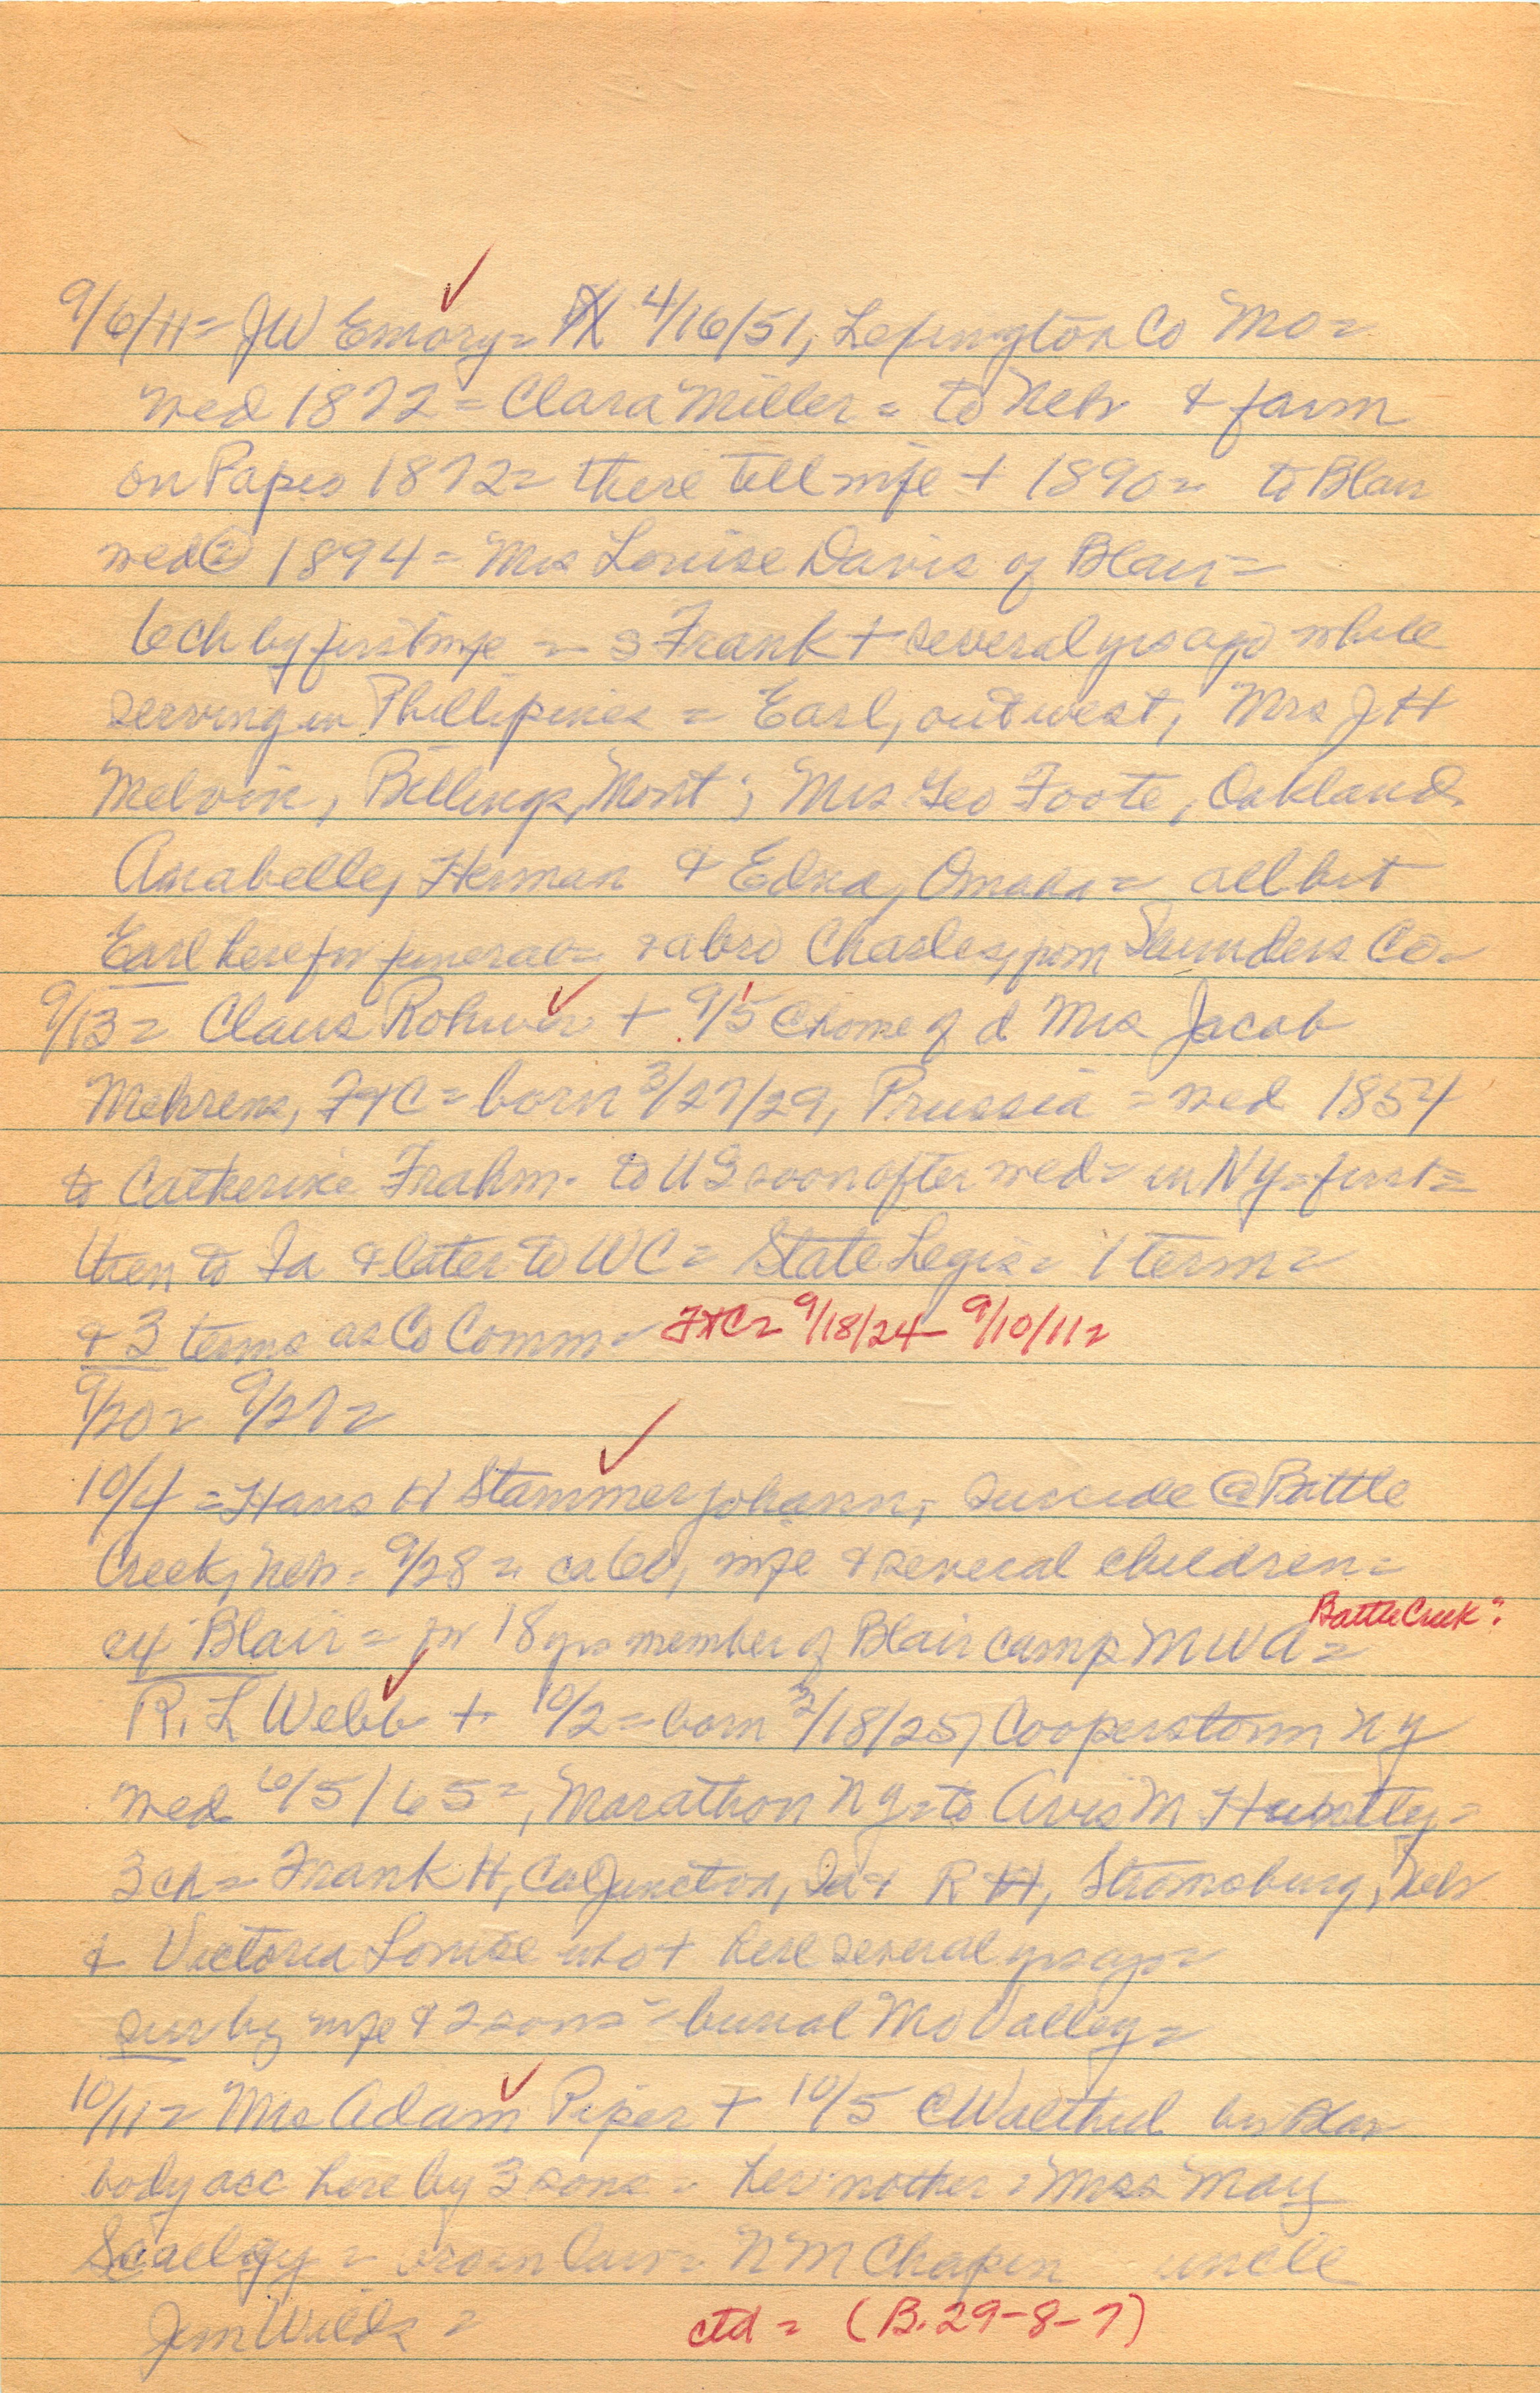 9/6/11= JW Emory= 4/16/51, Lexington Co Mo=
wed 1872= Clara Miller= to Nebr & farm
on Papio 1872= there till wife + 1890= to Blair
wed② 1894= Mrs Louise Davis of Blair=
6ch by first wife = s Frank + several yrs ago while
serving in Phillipines = Earl, out west, Mrs J H
Melvin, Billings, Mont; Mrs Geo Foote, Oakland
Anabelle, Herman & Edna, Omaha= all but
Earl here for funeral= & a bro Charles, from Saunders Co=
9/13= Claus Rohwer + 9/5 @ home of d Mrs Jacob
Mehrens, FtC= born 3/27/29, Prussia = wed 1854
to Catherine Frahm. to US soon after wed= in NY=first=
then to Ia & later to WC= State Legis= 1 term=
& 3 terms as Co Comm= FtC= 9/18/24- 9/10/11=
9/20= 9/27=
10/4 =Hans H Stammerjohann, suicide @ Battle
Creek, Neb= 9/28= ca 60, wife & several children=
ex Blair= for 18 yrs member of Blair camp MWA= Battle Creek:
R. L Webb + 10/2= born /18/25, Cooperstown NY
wed /5/65=, Marathon NY=to Avis M
3 ch= Frank H, Cal Junction, Ia & R H, Stromsburg, Nebr
& Victoria Louise who + here several yrs ago=
sur by wife & 2 sons = burial Mo Valley=
10/11= Mrs Adam Piper + 10/5 @ Walthill
body acc here by 3 sons = her mother = Mrs May
= in law= N M Chapin uncle
Jim Wilds =
ctd = (B.29-8-7)